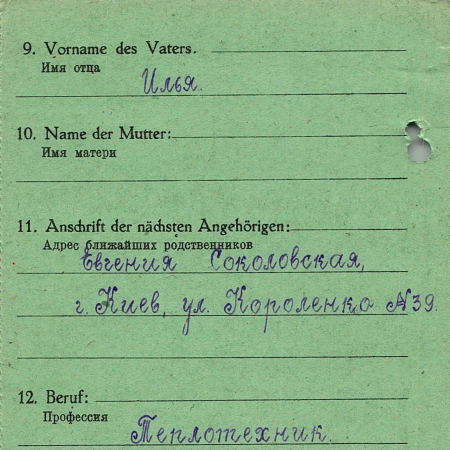 9. Vorname des Vaters.
Имя отца
Илья.
10. Name der Mutter:
Имя матери
11. Anschrift der nächsten Angehörigen:
Адрес ближайших родственников
Евгения Соколовская,
г. Киев, ул. Короленко №39.
12. Beruf:
Профессия
Теплотехник.